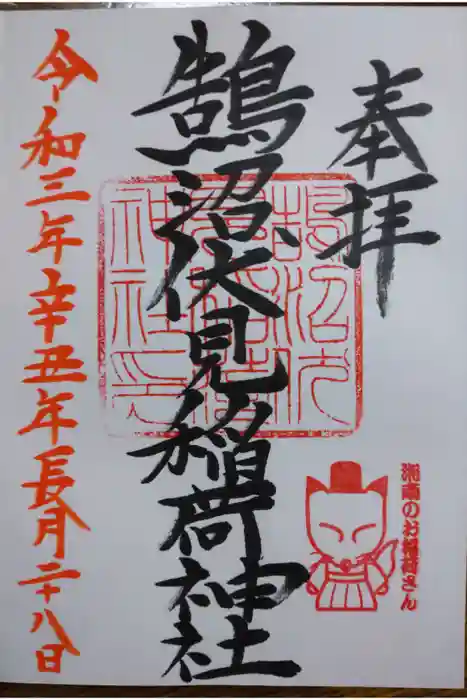 奉拝
鵠沼伏見稲荷神社
令和三年辛丑年長月二十八日
鵠沼伏見稲荷神社印
湘南のお稲荷さん